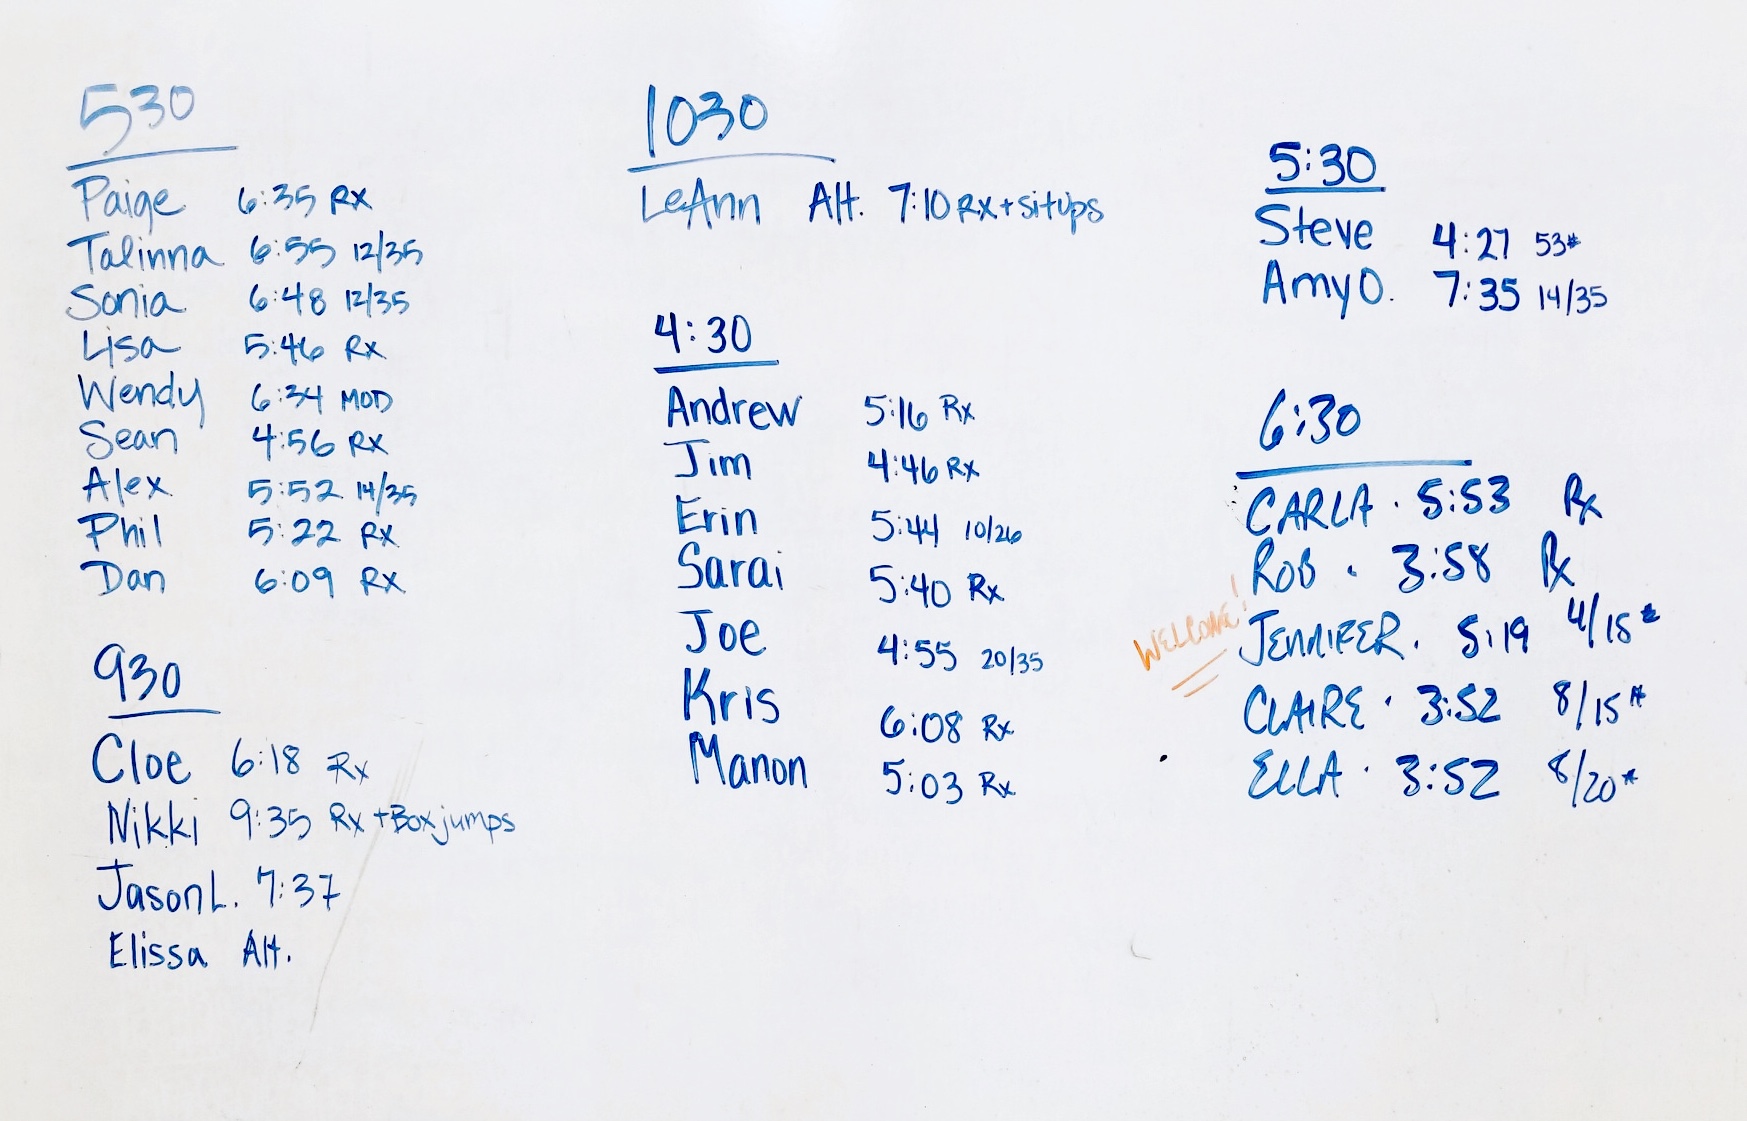 530
Paige 6:35 Rx
Talinna 6:55 12/35
Sonia 6:48 12/35
Lisa 5:46 Rx
Wendy 6:34 MOD
Sean 4:56 Rx
Alex 5:52 14/35
Phil 5:22 Rx
Dan 6:09 Rx
930
Cloe 6:18 Rx
Nikki 9:35 Rx + Box jumps
Jason L. 7:37
Elissa Alt.
1030
LeAnn Alt. 7:10 Rx + situps
4:30
Andrew 5:16 Rx
Jim 4:46 Rx
Erin 5:44 10/26
Sarai 5:40 Rx
Joe 4:55 20/35
Kris 6:08 Rx
Manon 5:03 Rx
5:30
Steve 4:27 53#
Amy O. 7:35 14/35
6:30
CARLA · 5:53 Rx
ROB · 3:58 Rx
WELCOME! JENNIFER · 5:19 4/15#
CLAIRE · 3:52 8/15#
ELLA · 3:52 8/20#